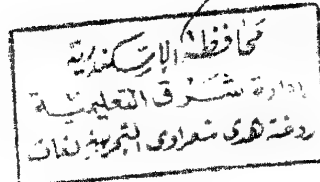 محافظة الإسكندرية
إدارة شرق التعليمية
روضة هدى شعراوى التجريبية لغات